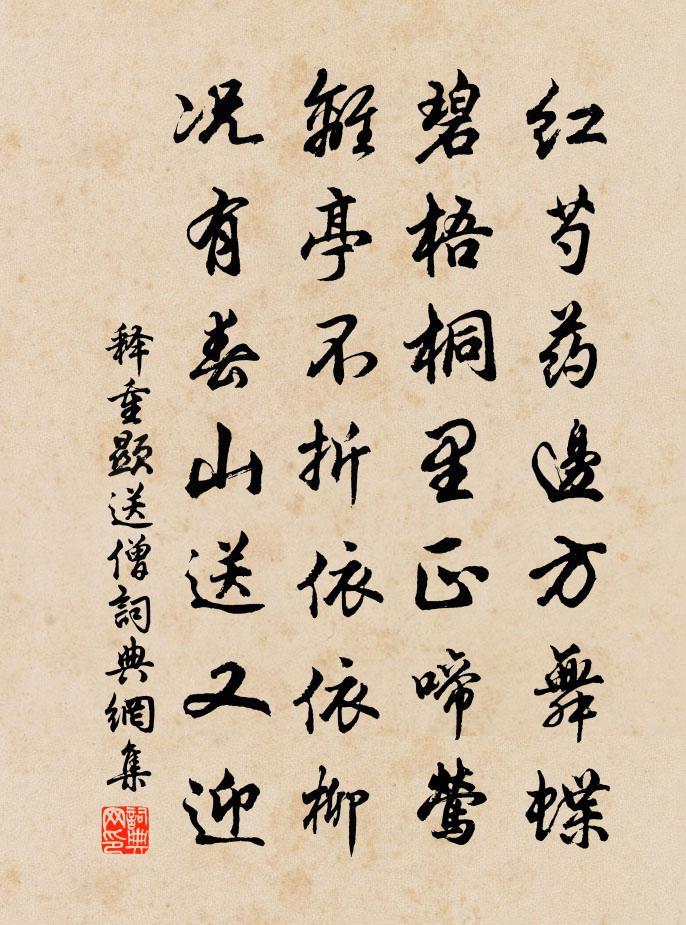 红芍药邊方舞蝶
碧梧桐里正啼莺
離亭不折依依柳
况有春山送又迎
释重顯送僧詞典網集
詞典网印